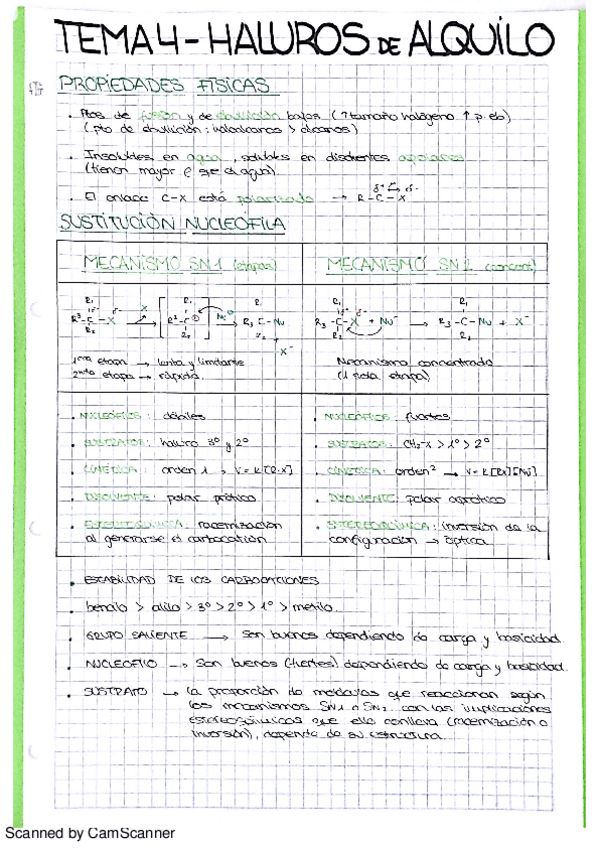 TEMA 4 - HALUROS DE ALQUILO
PROPIEDADES FÍSICAS
• Ptos de fusión y de ebullición bajos (↑ tamaño halógeno ↑ p. eb)
(pto de ebullición: haloalcanos > alcanos)
• Insolubles en agua, solubles en disolventes apolares
(tienen mayor ρ que el agua)
• El enlace C-X está polarizado → R-C-X
SUSTITUCIÓN NUCLEÓFILA
MECANISMO SN1 (etapas)
1era etapa → lenta y limitante
2nda etapa → rápida
• NUCLEÓFILOS: débiles
• SUSTRATOS: haluro 3º y 2º
• CINÉTICA: orden 1 → V=K[R-X]
• DISOLVENTE: polar prótico
• ESTEREOQUÍMICA: racemización
al generarse el carbocatión
MECANISMO SN2 (concert)
Mecanismo concentrado
(1 sola etapa)
• NUCLEÓFILOS: fuertes
• SUSTRATOS: CH3-X > 1º > 2º
• CINÉTICA: orden 2 → V=K[RX][Nu]
• DISOLVENTE: polar aprótico
• ESTEREOQUÍMICA: inversión de la
configuración → óptica
• ESTABILIDAD DE LOS CARBOCATIONES
• bencilo > alilo > 3º > 2º > 1º > metilo.
• GRUPO SALIENTE → Son buenos dependiendo de carga y basicidad.
• NUCLEÓFILO → Son buenos (fuertes) dependiendo de carga y basicidad.
• SUSTRATO → la proporción de moléculas que reaccionan según
los mecanismos SN1 o SN2 con las implicaciones
estereoquímicas que ello conlleva (racemización o
inversión), depende de su estructura.
Scanned by CamScanner